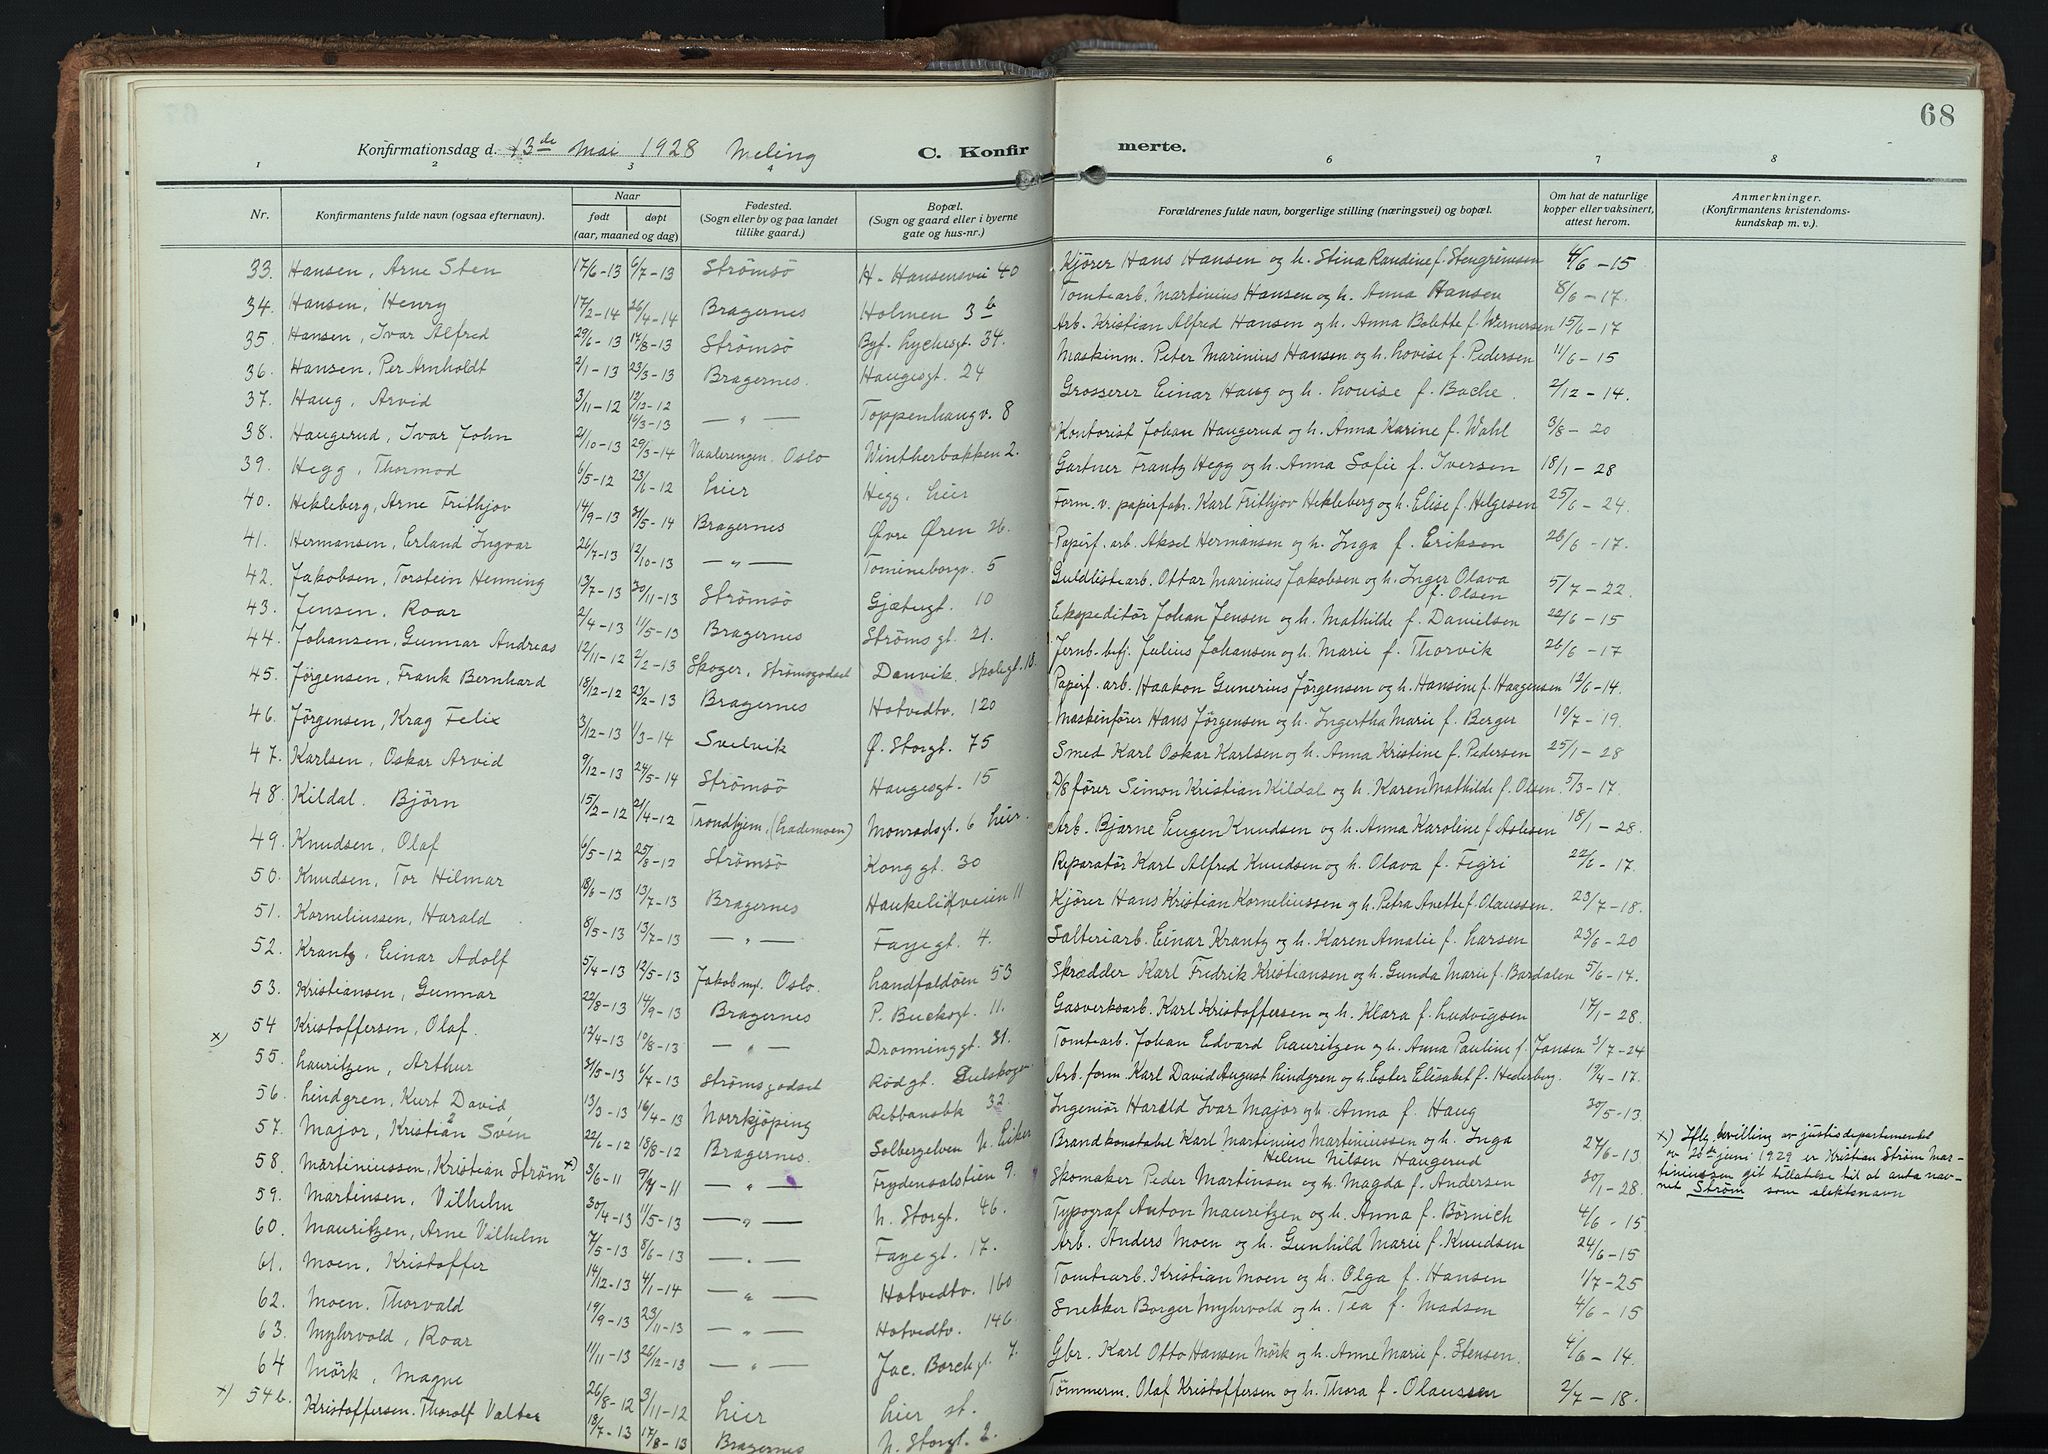 68
Konfirmationsdag d. 13de Mai 1928 Meling C. Konfirmerte.
1 2 3 4 6 7 8
Nr. Konfirmantens fulde navn (ogsaa efternavn). Naar født døpt (aar, maaned og dag) Fødested. (Sogn eller by og paa landet tillike gaard.) Bopæl. (Sogn og gaard eller i byerne gate og hus-nr.) Forældrenes fulde navn, borgerlige stilling (næringsvei) og bopæl. Om hat de naturlige kopper eller vaksinert, attest herom. Anmerkninger. (Konfirmantens kristendomskundskap m. v.).
33. Hansen, Arne Sten 17/6-13 6/7-13 Strömsö H. Hansensvei 40 Kjörer Hans Hansen og h. Stina Randine f. Stengrimsen 4/6-15
34. Hansen, Henry 17/2-14 26/4-14 Bragernes Holmen 3b Tomtearb. Martinius Hansen og h. Anna Hansen 8/6-17.
35. Hansen, Ivar Alfred 29/6-13 17/8-13 Strömsö Byf. Lychesgt. 34. Arb. Kristian Alfred Hansen og h. Anna Bolette f. Wernersen 15/6-17
36. Hansen, Per Arnholdt 2/1-13 23/3-13 Bragernes. Haugesgt. 24 Maskinm. Peter Marinius Hansen og h. Lovise f. Pedersen 11/6-15
37. Haug, Arvid 3/11-12 12/12-12 — " — Toppenhaugv. 8 Grosserer Einar Haug og h. Louise f. Bache. 2/12-14.
38. Haugerud, Ivar John 2/10-13 16/3-13 29/3-14 Vaalerengen. Oslo Wintherbakken 2. Kontorist Johan Haugerud og h. Anna Karine f. Wahl 3/8-20
39. Hegg, Thormod 6/5-12 23/6-12 Lier Hegg, Lier Gartner Frantz Hegg og h. Anna Sofie f. Iversen 18/1-28
40. Hekleberg, Arne Frithjov 14/9-13 31/5-14 Bragernes Øvre Øren 26. Form. v. papirfabr. Karl Frithjov Hekleberg og h. Elise f. Helgesen 25/6-24.
41. Hermansen, Erland Ingvar 26/7-13 12/10-13 — " — Tomineborgv. 5 Papirf. arb. Aksel Hermansen og h. Inga f. Eriksen 26/6-17.
42. Jakobsen, Torstein Henning 13/7-13 30/11-13 Strömsö Gjætergt. 10 Guldlistearb. Ottar Marinius Jakobsen og h. Inger Olava f. Olsen 5/7-22.
43. Jensen, Roar 2/4-13 11/5-13 Bragernes Ströms gt. 21. Ekspeditör Johan Jensen og h. Mathilde f. Danielsen 22/6-15
44. Johansen, Gunnar Andreas 12/11-12 2/2-13 Skoger, Strömsgodset Danvik, Skolegt. 18. Jernb. betj. Julius Johansen og h. Marie f. Thorvik 26/6-17
45. Jörgensen, Frank Bernhard 18/12-12 23/2-13 Bragernes Hotvedtv. 120 Papirf. arb. Haakon Gunerius Jörgensen og h. Hansine f. Haagensen 12/6-14.
46. Jörgensen, Krag Felix 3/12-13 1/3-14 Svelvik Ø. Storgt. 75 Maskinfører Hans Jörgensen og h. Ingertha Marie f. Berger 10/7-19.
47. Karlsen, Oskar Arvid 9/12-13 24/5-14 Strömsö Haugesgt. 15 Smed Karl Oskar Karlsen og h. Anna Kristine f. Pedersen 25/1-28
48. Kildal. Björn 15/2-12 21/4-12 Trondhjem, (Lademoen) Monradsgt. 6 Lier. D/S fører Simon Kristian Kildal og h. Karen Mathilde f. Olsen. 5/3-17.
49. Knudsen, Olaf 6/5-12 25/8-12 Strömsö Konggt. 30 Arb. Bjarne Eugen Knudsen og h. Anna Karoline f. Aslesen 18/1-28.
50. Knudsen, Tor Hilmar 18/6-13 13/7-13 Bragernes Haukelidveien 11 Reparatör Karl Alfred Knudsen og h. Olava f. Fegri 22/6-17.
51. Korneliussen, Harald 8/5-13 13/7-13 — " — Fayegt. 4. Kjörer Hans Kristian Korneliussen og h. Petra Anette f. Olaussen. 23/7-18.
52. Krantz, Einar Adolf 5/4-13 12/5-13 Jakob mgt. Oslo. Landfaldöen 53 Salteriarb. Einar Krantz og h. Karen Amalie f. Larsen 23/6-20
53. Kristiansen, Gunnar 22/8-13 14/9-13 Bragernes P. Buchsgt. 11. Skrædder Karl Fredrik Kristiansen og h. Gunda Marie f. Bardalen 5/6-14.
x) 54 Kristoffersen, Olaf. 13/4-13 10/8-13 — " — Dronninggt. 31. Gasverksarb. Karl Kristoffersen og h. Klara f. Ludvigsen 17/1-28.
55. Lauritzen, Arthur 31/5-13 6/7-13 Strömsgodset Rödgt. Gulskogen Tomtearb. Johan Edvard Lauritzen og h. Anna Pauline f. Jansen 3/7-24
56. Lindgren, Kurt David, 13/3-13 16/4-13 Norrkjöping Rebbansbk 32. Arb. form. Karl David August Lindgren og h. Ester Elisabet f. Hederberg. 19/4-17.
57. Major, Kristian Sven 22/6-12 18/8-12 Bragernes. Solbergelven N. Eiker Ingeniör Harald Ivar Major og h. Anna f. Haug 30/5-13
58. Martiniussen, Kristian Ström x) 3/6-11 — " — Frydensalstien 9. Brandkonstabel Karl Martinius Martiniussen og h. Inga Helene Nilsen Haugerud 27/6-13 x) Iflg. bevilling av justisdepartementet av 20de juni 1929 er Kristian Strøm Martiniussen git tillatelse til at anta navnet Strøm som slektsnavn
59. Martinsen, Vilhelm 30/4-13 11/5-13 — " — N. Storgt. 46. Skomaker Peder Martinsen og h. Magda f. Andersen 30/1-28.
60. Mauritzen, Arne Vilhelm 7/5-13 8/6-13 — " — Fayegt. 17. Typograf Anton Mauritzen og h. Anna f. Börnich 4/6-15.
61. Moen, Kristoffer 14/12-13 4/1-14 — " — Hotvedtv. 160 Arb. Anders Moen og h. Gunhild Marie f. Knudsen 24/6-15
62. Moen, Thorvald 19/9-13 23/11-13 — " — Hotvedtv. 146. Tomtearb. Kristian Moen og h. Olga f. Hansen 1/7-25
63. Myhrvold, Roar 11/11-13 26/12-13 — " — Jac. Borchgt. 7. Snekker Borger Myhrvold og h. Tea f. Madsen 4/6-15
64 Mörk, Magne 26/8-12 3/11-12 Lier Lier st. Gbr. Karl Otto Hansen Mörk og h. Anne Marie f. Stensen. 4/6-14.
x) 54b. Kristoffersen. Thorolf Valter 18/7-13 17/8-13 Bragernes N. Storgt. 2. Tömmerm. Olaf Kristoffersen og h. Thora f. Olaussen 2/7-18.